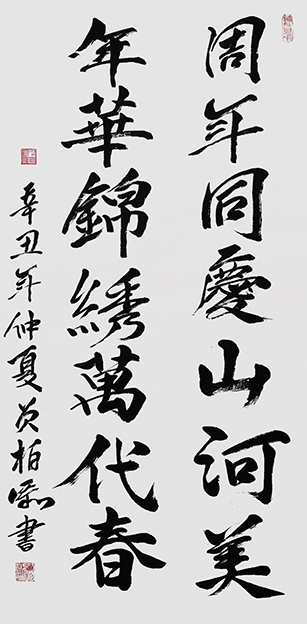 周年同慶山河美
年華錦綉萬代春
辛丑年仲夏
柏
書